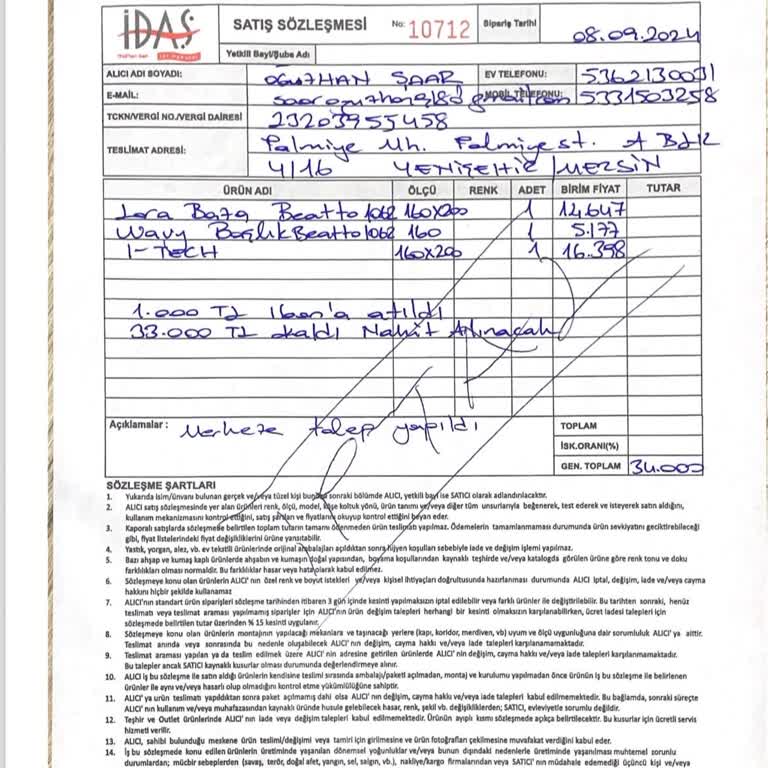 İDAŞ
SATIŞ SÖZLEŞMESİ
No: 10712
Sipariş Tarihi
08.09.2024
Yetkili Bayi/Şube Adı
ALICI ADI SOYADI: OĞUZHAN ŞAAR
EV TELEFONU: 5362130031
E-MAİL:
MOBİL TELEFONU: 5331503258
TCKN/VERGİ NO./VERGİ DAİRESİ 23203955458
TESLİMAT ADRESİ: Palmiye Mh. Palmiye st. A BLK
4/16 YENİŞEHİR/MERSİN
ÜRÜN ADI ÖLÇÜ RENK ADET BİRİM FİYAT TUTAR
Lora Baza Beatto 1062 160x200 1 12.647
Wavy Başlık Beatto 1062 160 1 5.177
I-TECH 160x200 1 16.398
1.000 TL Iban'a atıldı
33.000 TL kaldı Nakit Alınacak
İPTAL
Açıklamalar : Merkeze talep yapıldı
TOPLAM
İSK.ORANI(%)
GEN. TOPLAM 34.000
SÖZLEŞME ŞARTLARI
1. Yukarıda isim/ünvanı bulunan gerçek ve/veya tüzel kişi bundan sonraki bölümde ALICI, yetkili bayi ise SATICI olarak adlandırılacaktır.
2. ALICI satış sözleşmesinde yer alan ürünleri renk, ölçü, model, köşe koltuk yönü, ürün tanımı ve/veya diğer tüm unsurlarıyla beğenerek, test ederek ve isteyerek satın aldığını,
kullanım mekanizmasını kontrol ettiğini, satış şartları ve fiyatlarını okuyup kontrol ettiğini beyan eder.
3. Kaporalı satışlarda sözleşmede belirtilen toplam tutarın tamamı ödenmeden ürün teslimatı yapılmaz. Ödemelerin tamamlanmaması durumunda ürün sevkiyatını geciktirebileceği
gibi, fiyat listelerindeki fiyat değişikliklerini ürüne yansıtabilir.
4. Yastık, yorgan, alez, vb. ev tekstili ürünlerinde orijinal ambalajları açıldıktan sonra hijyen koşulları sebebiyle iade ve değişim işlemi yapılmaz.
5. Bazı ahşap ve kumaş kaplı ürünlerde ahşabın ve kumaşın doğal yapısından, boyama koşullarından kaynaklı teşhirde ve/veya katalogda görülen ürüne göre renk tonu ve doku
farklılıkları olması normaldir. Bu farklılıklar hasar veya hata olarak kabul edilmez.
6. Sözleşmeye konu olan ürünlerin ALICI'nın özel renk ve boyut istekleri ve/veya kişisel ihtiyaçları doğrultusunda hazırlanması durumunda ALICI iptal, değişim, iade ve/veya cayma
hakkını hiçbir şekilde kullanamaz
7. ALICI'nın standart ürün siparişleri sözleşme tarihinden itibaren 3 gün içinde kesinti yapılmaksızın iptal edilebilir veya farklı ürünler ile değiştirilebilir. Bu tarihten sonraki, henüz
teslimatı veya teslimat araması yapılmamış siparişler için ALICI'nın ürün değişim talepleri herhangi bir kesinti olmaksızın karşılanabilirken, ücret iadesi talepleri için
sözleşmede belirtilen tutar üzerinden % 15 kesinti uygulanır.
8. Sözleşmeye konu olan ürünlerin montajının yapılacağı mekanlara ve taşınacağı yerlere (kapı, koridor, merdiven, vb) uyum ve ölçü uygunluğuna dair sorumluluk ALICI'ya aittir.
Teslimat anında veya sonrasında bu nedenle oluşabilecek ALICI'nın değişim, cayma hakkı ve/veya iade talepleri karşılanamamaktadır.
9. Teslimat araması yapılan ya da teslim edilmek üzere ALICI'nın adresine getirilen ürünlerde ALICI'nın değişim, cayma hakkı ve/veya iade talepleri karşılanamamaktadır.
Bu talepler ancak SATICI kaynaklı kusurlar olması durumunda değerlendirmeye alınır.
10. ALICI iş bu sözleşme ile satın aldığı ürünlerin kendisine teslimi sırasında ambalajı/paketi açılmadan, montaj ve kurulumu yapılmadan önce ürünün iş bu sözleşme ile belirlenen
ürünler ile aynı ve/veya hasarlı olup olmadığını kontrol etme yükümlülüğüne sahiptir.
11. ALICI'ya ürün teslimatı yapıldıktan sonra paket açılmamış dahi olsa ALICI'nın değişim, cayma hakkı ve/veya iade talepleri kabul edilmemektedir. Bu bağlamda, sonraki süreçte
ALICI'nın kullanım ve/veya muhafazasından kaynaklı üründe husule gelebilecek hasar, renk, şekil vb. değişikliklerden; SATICI, evleviyetle sorumlu değildir.
12. Teşhir ve Outlet ürünlerinde ALICI'nın iade veya değişim talepleri kabul edilmemektedir. Ürünün ayıplı kısmı sözleşmede açıkça belirtilecektir. Bu kusurlar için ücretli servis
hizmeti verilir.
13. ALICI, sahibi bulunduğu meskene ürün teslimi/değişimi veya tamiri için girilmesine ve ürün fotoğrafları çekilmesine muvafakat verdiğini kabul eder.
14. İş bu sözleşmede konu edilen ürünlerin üretiminde yaşanılan dönemsel yoğunluklar ve/veya bunun dışındaki nedenlerle üretimde yaşanılması muhtemel sorunlu
durumlardan; mücbir sebeplerden (savaş, terör, doğal afet, yangın, sel, salgın, vb.), nakliye/kargo firmalarından veya SATICI'nın müdahale edemediği üçüncü kişi ve/veya